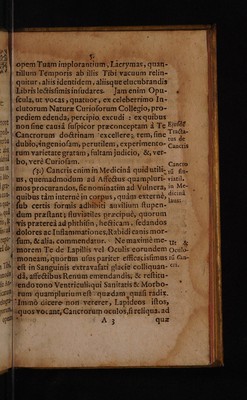 5.
opem Tuam implorantium, Lacrymæ, quan-
tillum Temporis ab illis Tibi vacuum relin-
quitur, aliis ejusdem, aliisque elucubrandis
Libris lectissimis insudares. Jam enim Opu-
scula, ut vocas, quatuor, ex celeberrimo In-
clutorum Naturæ Curiosorum Collegio, pro-
pediem edenda, percipio excudi: ex quibus
non sine causâ suspicor præconceptam à Te
Cancrorum doctrinam excellere; rem, sine
dubio, ingeniosam, perutilem, experimento-
rum varietate gratam, fultam judicio, &, ver-
bo, verè Curiosam.
Ejusdē
Tracta-
tus de
Cancris
Cancris enim in Medicinâ quid utili-
us, quemadmodum ad Affectus quamplurimos
procurandos, sic nominatim ad Vulnera,
quibus tàm internè in corpus, quàm externè,
sub certis formis adhiberi auxilium stupen-
dum præstant; fluviatiles præcipuè, quorum
vis præterea ad phthisin, hecticam, sedandos
dolores ac Inflammationes, Rabidi canis mor-
sum, & alia, commendatur. Ne maximè me-
morem Te de Lapillis vel Oculis eorundem
moneam, quorum usus pariter efficacissimus
est in Sanguinis extravasati glacie colliquan-
dâ, affectibus Renum emendandis, & restitu-
endo tono Ventriculi qui Sanitatis & Morbo-
rum quamplurium est quædam quasi radix.
Immò dicere non vererer, Lapideos istos,
quos vocant, Cancrorum oculos, si reliqua ad
Cancro
in Me-
dicinâ
usus:
Ut &
Oculo-
rum Can-
A 3
quæ